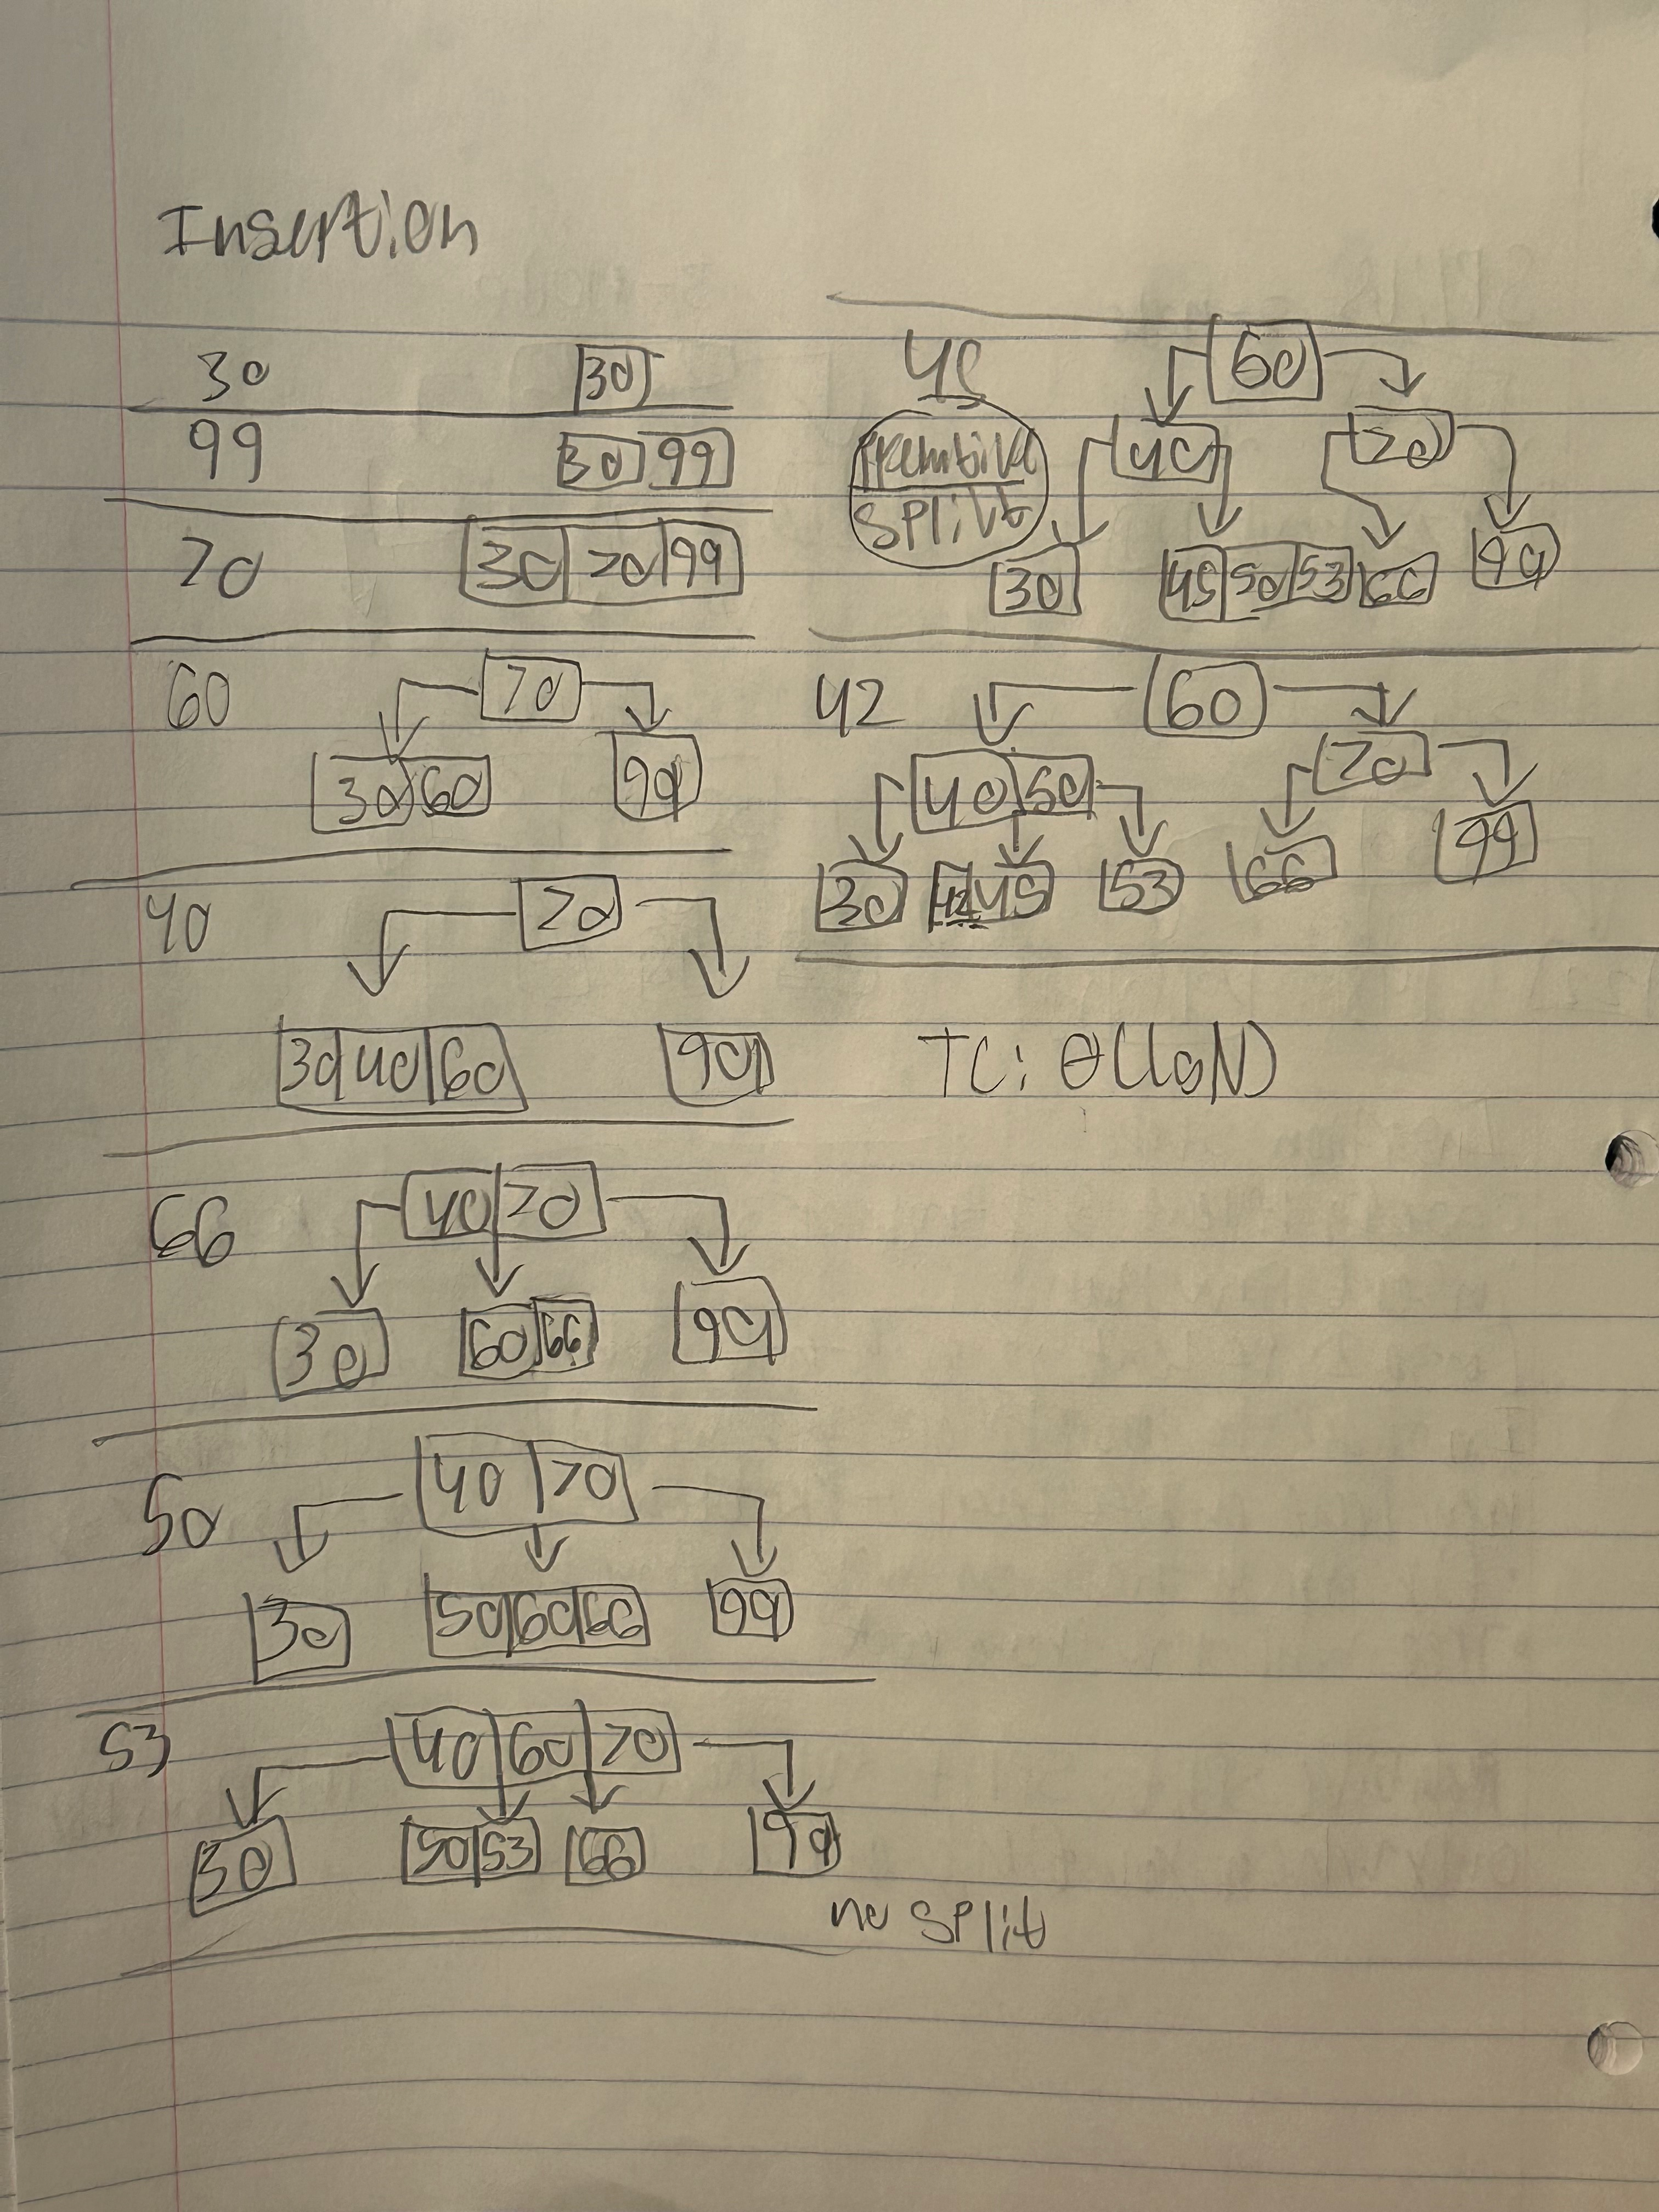 Insertion
30 30
99 30 99
70 30 70 99
60 70
30 60 99
40 70
30 40 60 99
66 40 70
30 60 66 99
50 40 70
30 50 60 66 99
53 40 60 70
30 50 53 66 99
no split
45 60
Premtive 40 70
split
30 45 50 53 66 99
42 60
40 50 70
30 42 45 53 66 99
TC: θ(loN)